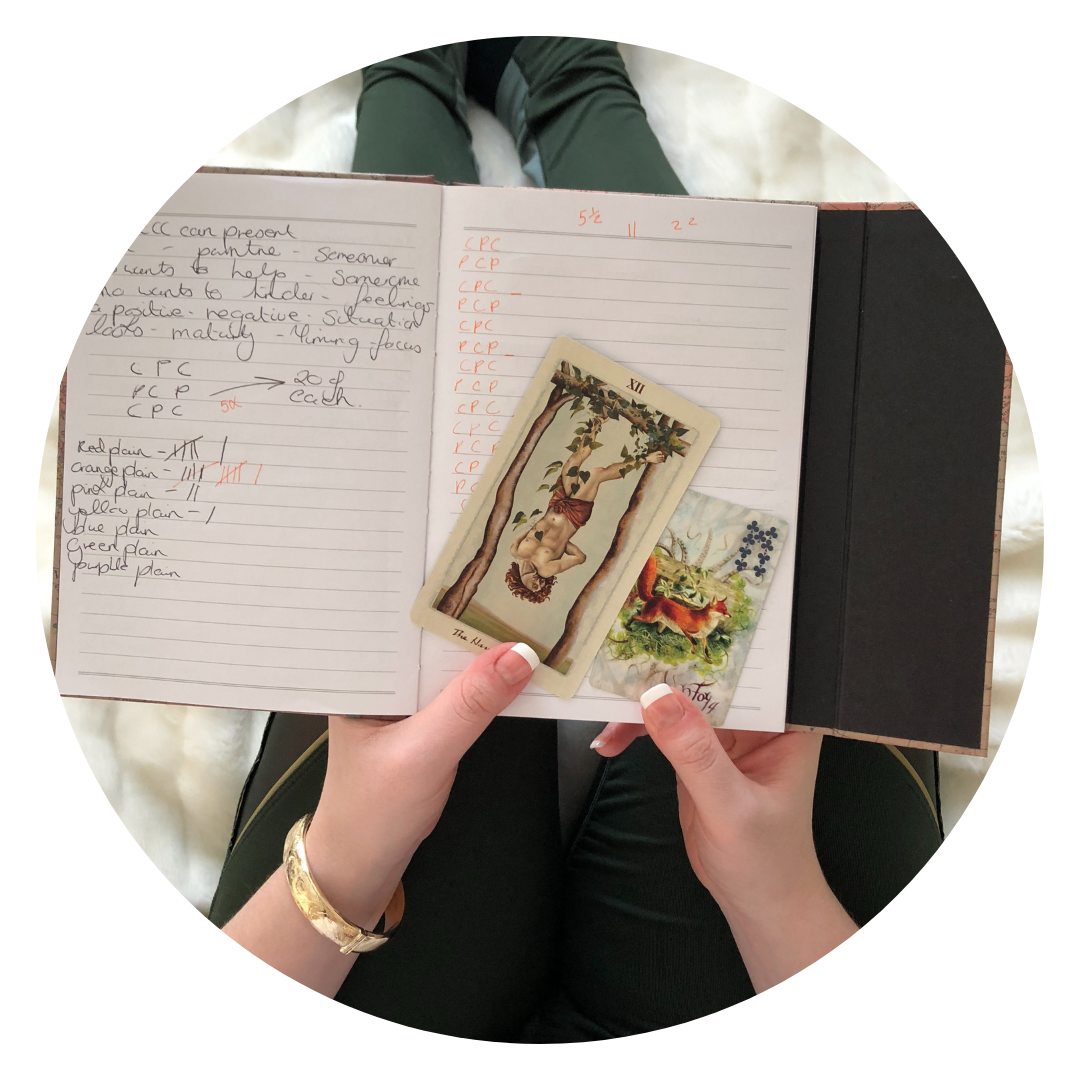 CC can present
- - paintne - Someoner
wants to help - Someome
who wants to hinder - feelings
positive - negative - situation
- maturity - timing - focus
C P C
P C P → 20 of
C P C 50x each.
Red plain - |||| |
Orange plain - |||| |||| |
pink plain - ||
yellow plain - |
blue plain
Green plain
purple plain
5½ 11 2²
CPC
PCP
CPC _
PCP
CPC
PCP _
CPC
PCP
CPC
CPC
PCP
CP
PC
C
XII
The
Fox